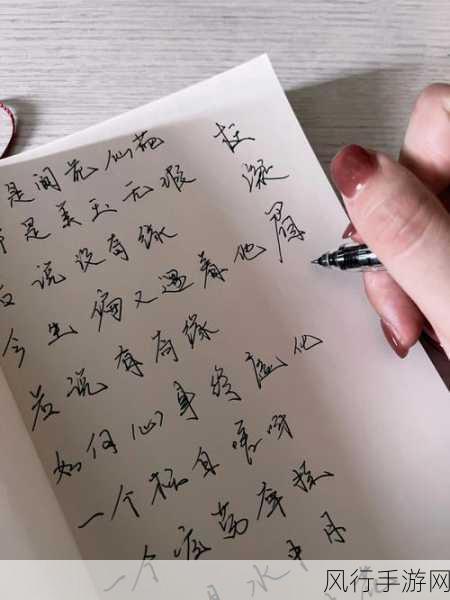 枉凝眉
是阆苑仙葩
是美玉无瑕
说没奇缘
今生偏又遇着他
若说有奇缘
如何心事终虚化
一个枉自嗟呀
一个空劳牵
水中月
风行手游网